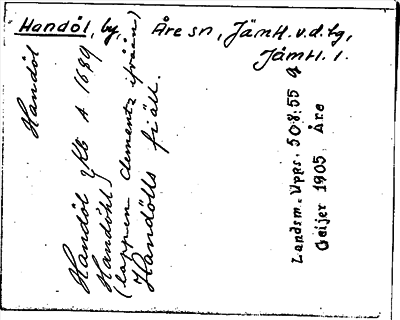 Handöl, by, Åre sn, Jämtl. v.d. tg,
Jämtl. l.
Handöl
Handöl } Kb A 1689
Handöhl
(lappen Clements ifrån)
Handölls fiäll.
Landsm. Upps. 508:55 q
Geijer 1905 Åre